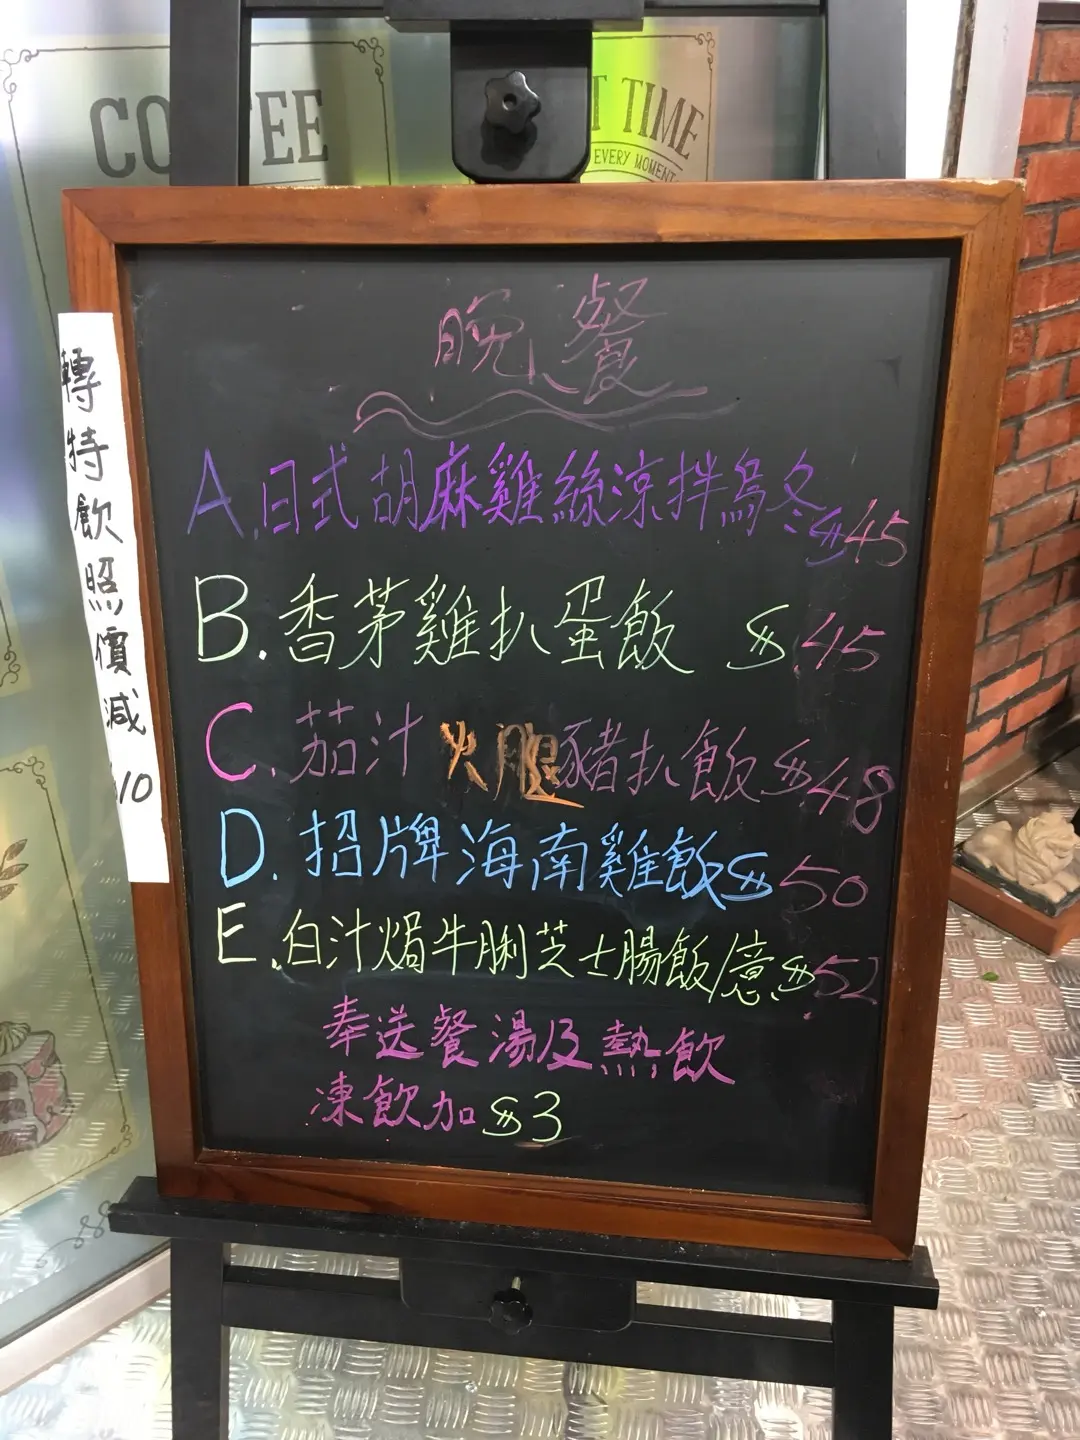 TIME
EVERY MOMENT
晚餐
A.日式胡麻雞絲涼拌烏冬$45
B.香茅雞扒蛋飯 $45
C.茄汁火腿豬扒飯$48
D.招牌海南雞飯$50
E.白汁焗牛脷芝士腸飯/意$52
奉送餐湯及熱飲
凍飲加$3
轉特飲照價減
$10